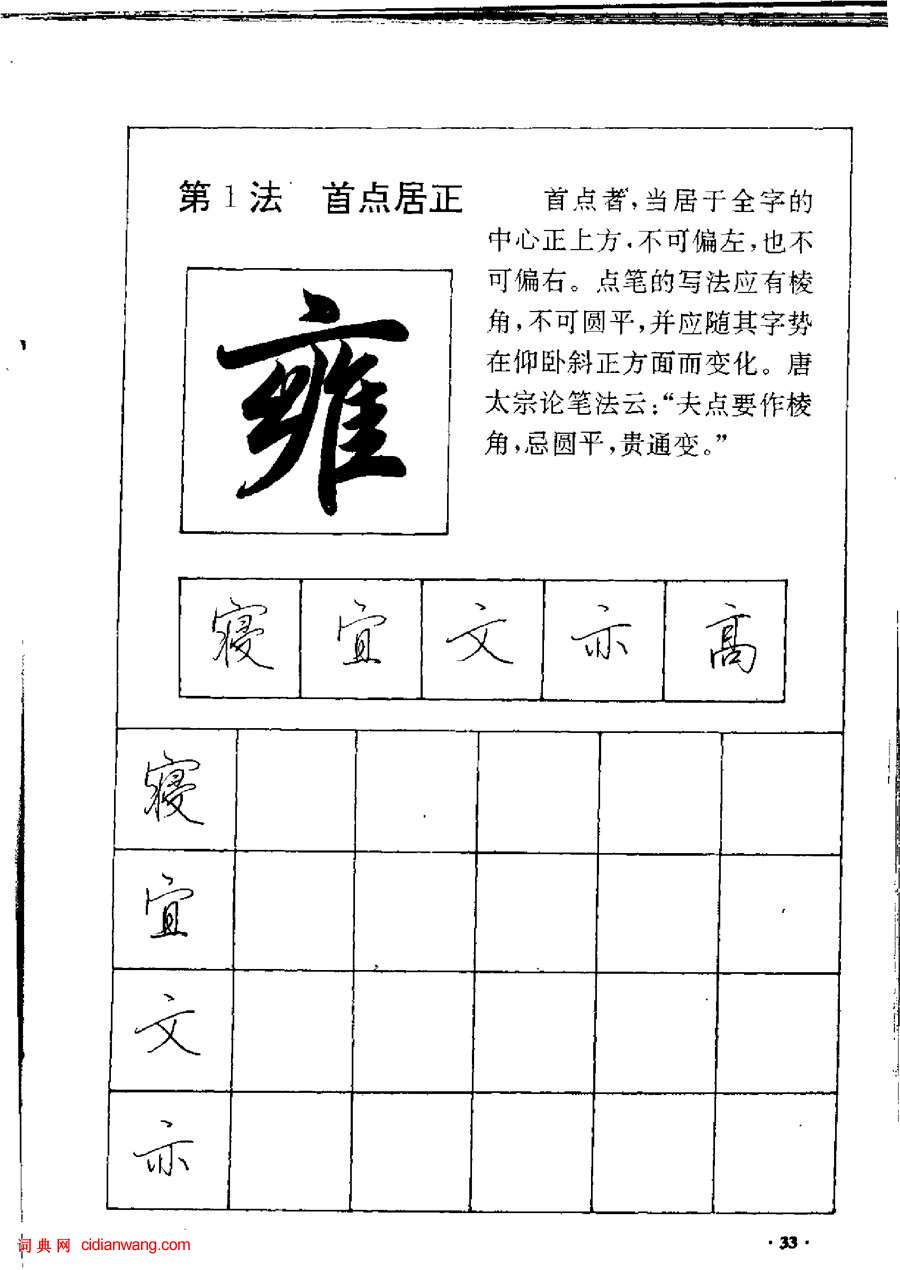 第1法 首点居正
首点者,当居于全字的
中心正上方,不可偏左,也不
可偏右。点笔的写法应有棱
角,不可圆平,并应随其字势
在仰卧斜正方面而变化。唐
太宗论笔法云:“夫点要作棱
角,忌圆平,贵通变。”
雍
寝 宜 文 亦 高
寝
宜
文
亦
词典网 cidianwang.com
·33·